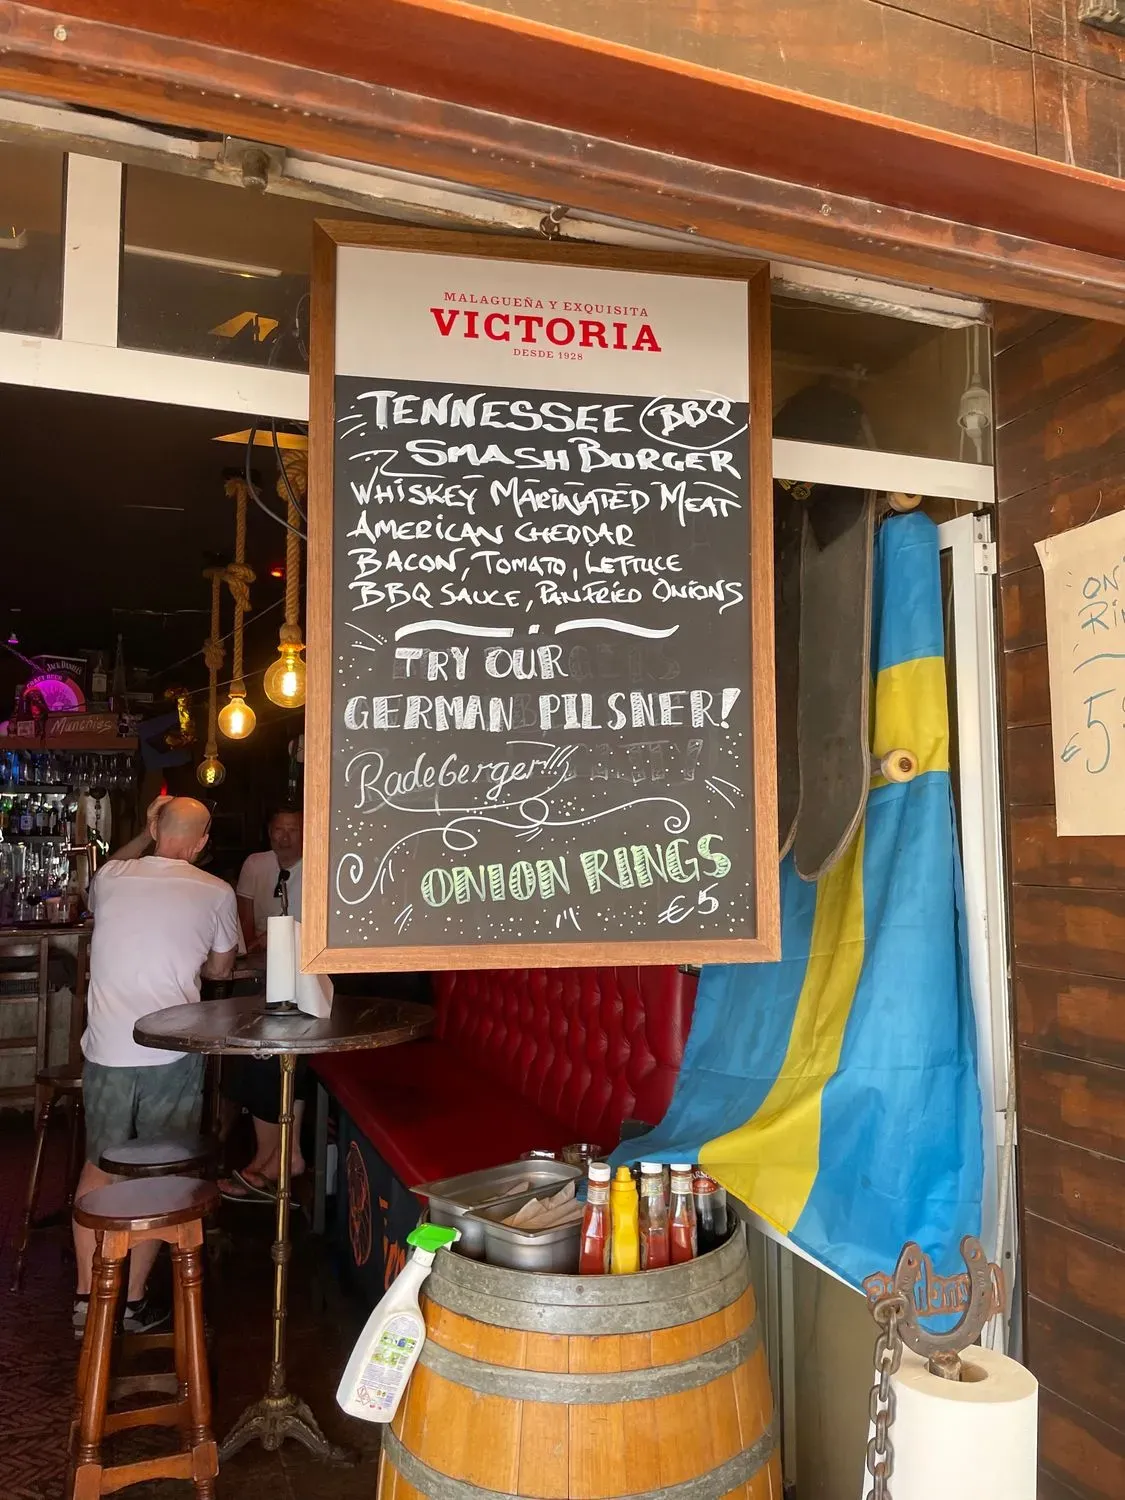 MALAGUEÑA Y EXQUISITA
VICTORIA
DESDE 1928
TENNESSEE BBQ
SMASH BURGER
WHISKEY MARINATED MEAT
AMERICAN CHEDDAR
BACON, TOMATO, LETTUCE
BBQ SAUCE, PANFRIED ONIONS
TRY OUR
GERMAN PILSNER!
Radeberger!!!
ONION RINGS
€5
JACK DANIEL'S
Munchies
ON
Ri
€5